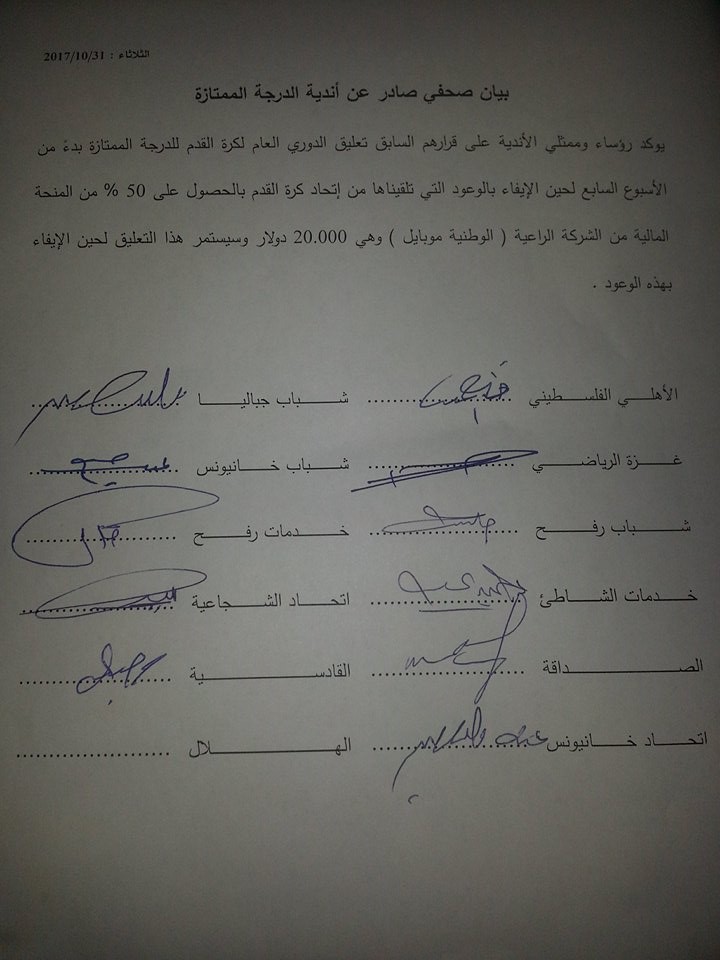 الثلاثاء : 2017/10/31
بيان صحفي صادر عن أندية الدرجة الممتازة
يوكد رؤساء وممثلي الأندية على قرارهم السابق تعليق الدوري العام لكرة القدم للدرجة الممتازة بدءً من
الأسبوع السابع لحين الإيفاء بالوعود التي تلقيناها من إتحاد كرة القدم بالحصول على 50 % من المنحة
المالية من الشركة الراعية ( الوطنية موبايل ) وهي 20.000 دولار وسيستمر هذا التعليق لحين الإيفاء
بهذه الوعود .
الأهلـي الفلسـطيني .................... شـــباب جباليـــا ....................
غـــزة الرياضـــي .................... شـــباب خـــانيونس ....................
شــــباب رفـــح .................... خـــدمات رفـــح ....................
خـــدمات الشـــاطئ .................... اتحـــاد الشـــجاعية ....................
الصـــــداقة .................... القادســـــية ....................
اتحـــاد خـــانيونس .................... الهـــــلال ....................